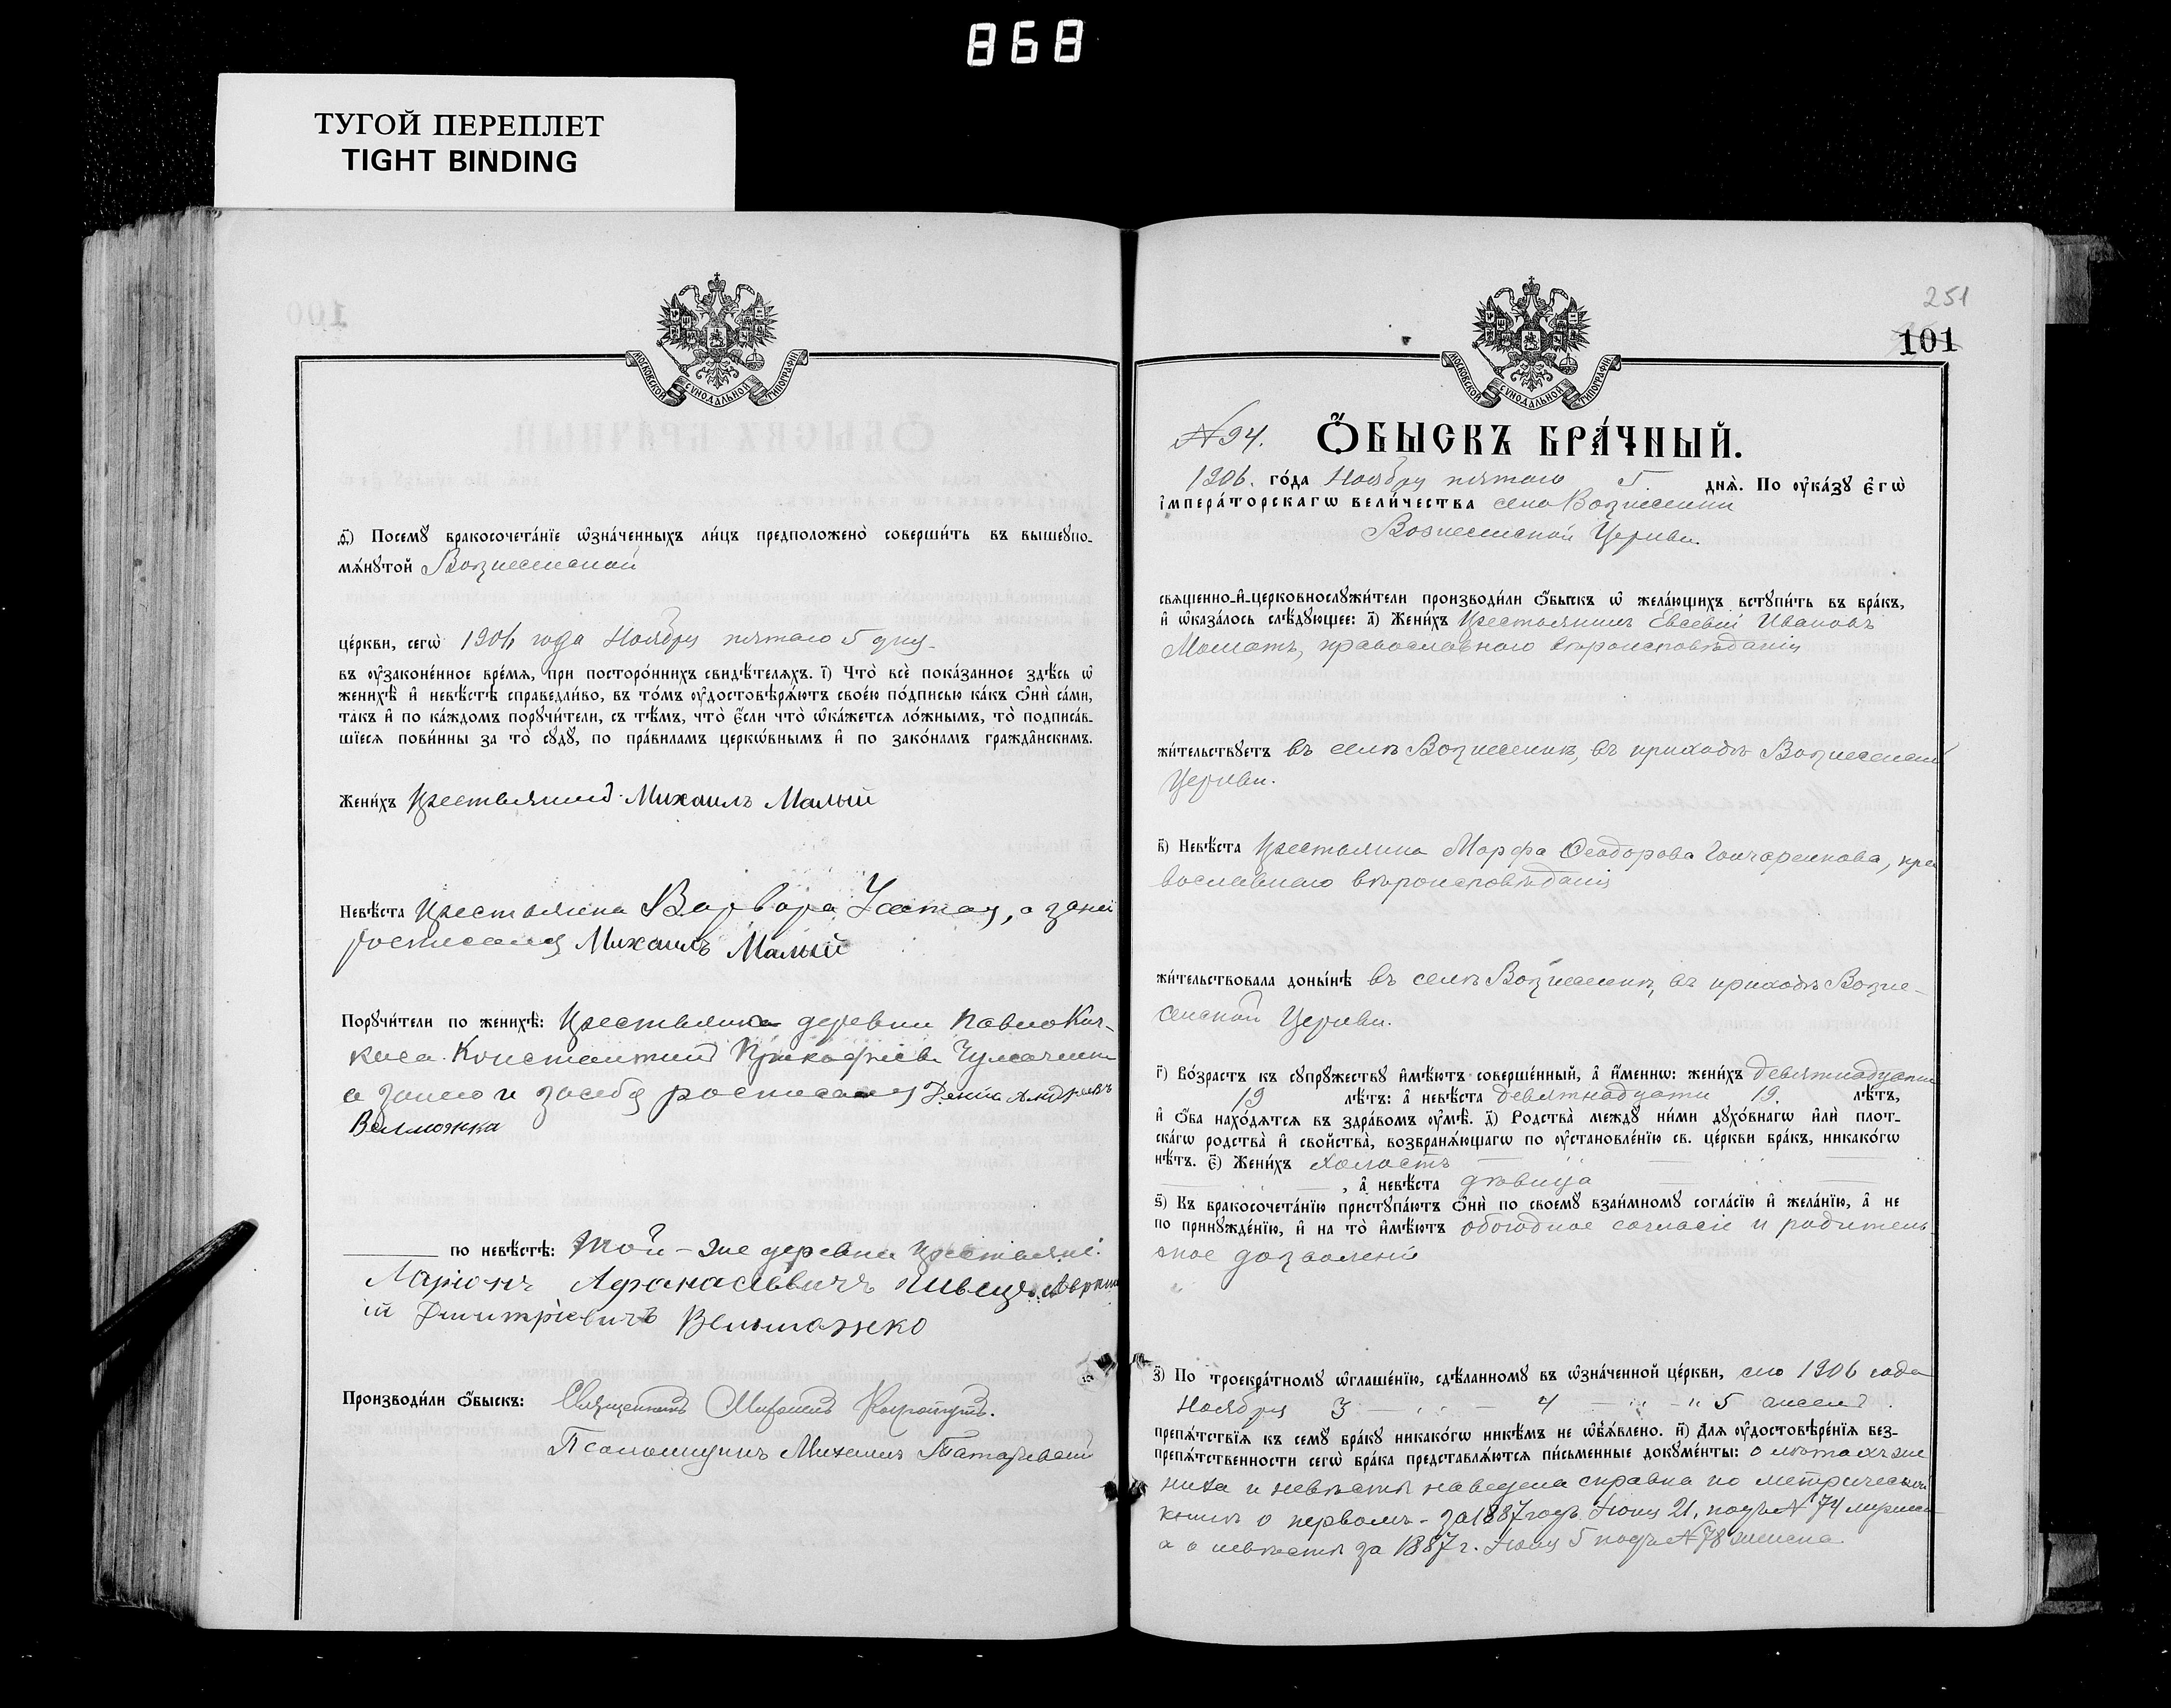 868
ТУГОЙ ПЕРЕПЛЕТ
TIGHT BINDING
д҃) Посемꙋ бракосочета́нїе ѡ҆зна́ченныхъ ли́цъ предположено̀ соверши́ть въ вышеꙋпо-
мѧ́нꙋтой Вознесенской
це́ркви, сегѡ̀ 1906 года Ноября пятаго 5 дня.
въ ᲂу҆законе́нное вре́мѧ, при посторо́ннихъ свидѣ́телѧхъ. і҃) Что̀ всѐ пока́занное здѣ́сь ѡ҆
женихѣ̀ и҆ невѣ́стѣ справедли́во, въ то́мъ ᲂу҆достовѣрѧ́ютъ свое́ю по́дписью ка́къ ѻ҆нѝ са́ми,
та́къ и҆ по ка́ждомъ порꙋчи́тели, съ тѣ́мъ, что̀ є҆́сли что̀ ѡ҆ка́жетсѧ ло́жнымъ, то̀ подписа́в-
шїесѧ пови́нны за то̀ сꙋдꙋ̀, по пра́виламъ церко́внымъ и҆ по зако́намъ гражда́нскимъ.
Жени́хъ Крестьянинъ Михаилъ Малый
Невѣ́ста Крестьянка Варвара, а за нея
Михаилъ Малый
Порꙋчи́тели по женихѣ̀: Крестьяне деревни Павло Кич-
каса Константинъ
а за него и за себя росписался Андреевъ
Вельможка
по невѣ́стѣ: Той-же деревни Крестьяне:
Ларіонъ Афанасьевичъ Швецъ
ій Дмитріевичъ Вельможко
Производи́ли ѻ҆́быскъ: Священникъ Михаилъ
Псаломщикъ Михаилъ
МОСКОВСКОЙ СѴНОДАЛЬНОЙ ТИПОГРАФІИ
МОСКОВСКОЙ СѴНОДАЛЬНОЙ ТИПОГРАФІИ
251
101
№ 94. Ѻ҆́БЫСКЪ БРА́ЧНЫЙ.
1906. го́да Ноября пятаго 5. днѧ̀. По ᲂу҆ка́зꙋ є҆гѡ̀
і҆мпера́торскагѡ вели́чества села Вознесенки
Вознесенской Церкви.
свѧще́нно-и҆-церковнослꙋжи́тели производи́ли ѻ҆́быскъ ѡ҆ жела́ющихъ встꙋпи́ть въ бра́къ,
и҆ ѡ҆каза́лось слѣ́дꙋющее: а҃) Жени́хъ Крестьянинъ Евсевій Ивановъ
православнаго вѣроисповѣданія
жи́тельствꙋетъ въ селѣ Вознесенкѣ, въ приходѣ Вознесенской
Церкви.
в҃) Невѣ́ста Крестьянка Марфа Ѳеодорова Гончаренкова, пра
вославнаго вѣроисповѣданія
жи́тельствовала доны́нѣ въ селѣ Вознесенкѣ, въ приходѣ Возне-
сенской Церкви.
г҃) Во́зрастъ къ сꙋпрꙋ́жествꙋ и҆мѣ́ютъ соверше́нный, а҆ и҆́меннѡ: жени́хъ девятнадцати
19 лѣ́тъ: а҆ невѣ́ста девятнадцати 19. лѣ́тъ,
и҆ ѻ҆́ба нахо́дѧтсѧ въ здра́вомъ ᲂу҆мѣ̀. д҃) Родства̀ междꙋ̀ ни́ми дꙋхо́внагѡ и҆лѝ пло́т-
скагѡ родства̀ и҆ свойства̀, возбранѧ́ющагѡ по ᲂу҆становле́нїю св. це́ркви бра́къ, никако́гѡ
нѣ́тъ. є҃) Жени́хъ холостъ
, а҆ невѣ́ста дѣвица
ѕ҃) Къ бракосочета́нїю пристꙋпа́ютъ ѻ҆нѝ по своемꙋ̀ взаи́мномꙋ согла́сїю и҆ жела́нїю, а҆ не
по принꙋжде́нїю, и҆ на то̀ и҆мѣ́ютъ обоюдное согласіе и родитель
ское дозволеніе
з҃) По троекра́тномꙋ ѡ҆глаше́нїю, сдѣ́ланномꙋ въ ѡ҆зна́ченной це́ркви, сего 1906 года
Ноября 3 — " — 4 — " — " 5 чиселъ.
препѧ́тствїѧ къ семꙋ̀ бра́кꙋ никако́гѡ никѣ́мъ не ѡ҆б̾ѧ́влено. и҃) Длѧ̀ ᲂу҆достовѣре́нїѧ без-
препѧ́тственности сегѡ̀ бра́ка представлѧ́ютсѧ пи́сьменные докꙋме́нты: о лѣтахъ же
ниха и невѣсты наведена справка по метрической
книгѣ о первомъ - за 1887 годъ Іюня 21, подъ № 74 мужска
а о невѣстѣ за 1887 г. Іюня 5 подъ № 78 женска.